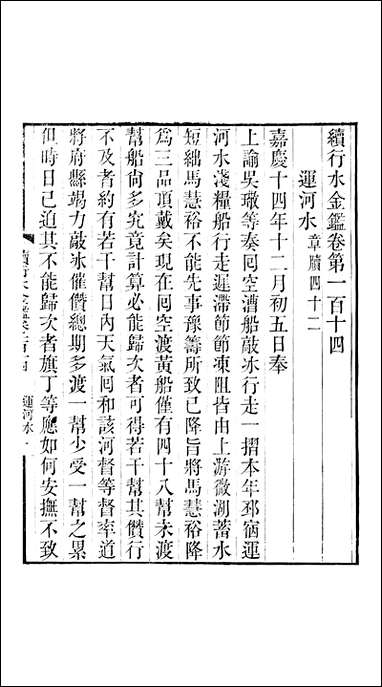 續行水金鑑卷第一百十四
運河水 章牘四十二
嘉慶十四年十二月初五日奉
上諭吳璥等奏回空漕船敲冰行走一摺本年邳宿運
河水淺糧船行走遲滯節節凍阻皆由上游微湖蓄水
短絀馬慧裕不能先事豫籌所致已降旨將馬慧裕降
爲三品頂戴矣現在回空渡黃船僅有四十八幫未渡
幫船尚多究竟計算必能歸次者可得若干幫其儹行
不及者約有若干幫日內天氣回和該河督等督率道
將府縣竭力敲冰催儹總期多渡一幫少受一幫之累
但時日已迫其不能歸次者旗丁等應如何安撫不致
續行水金鑑卷一百十四 運河水 一